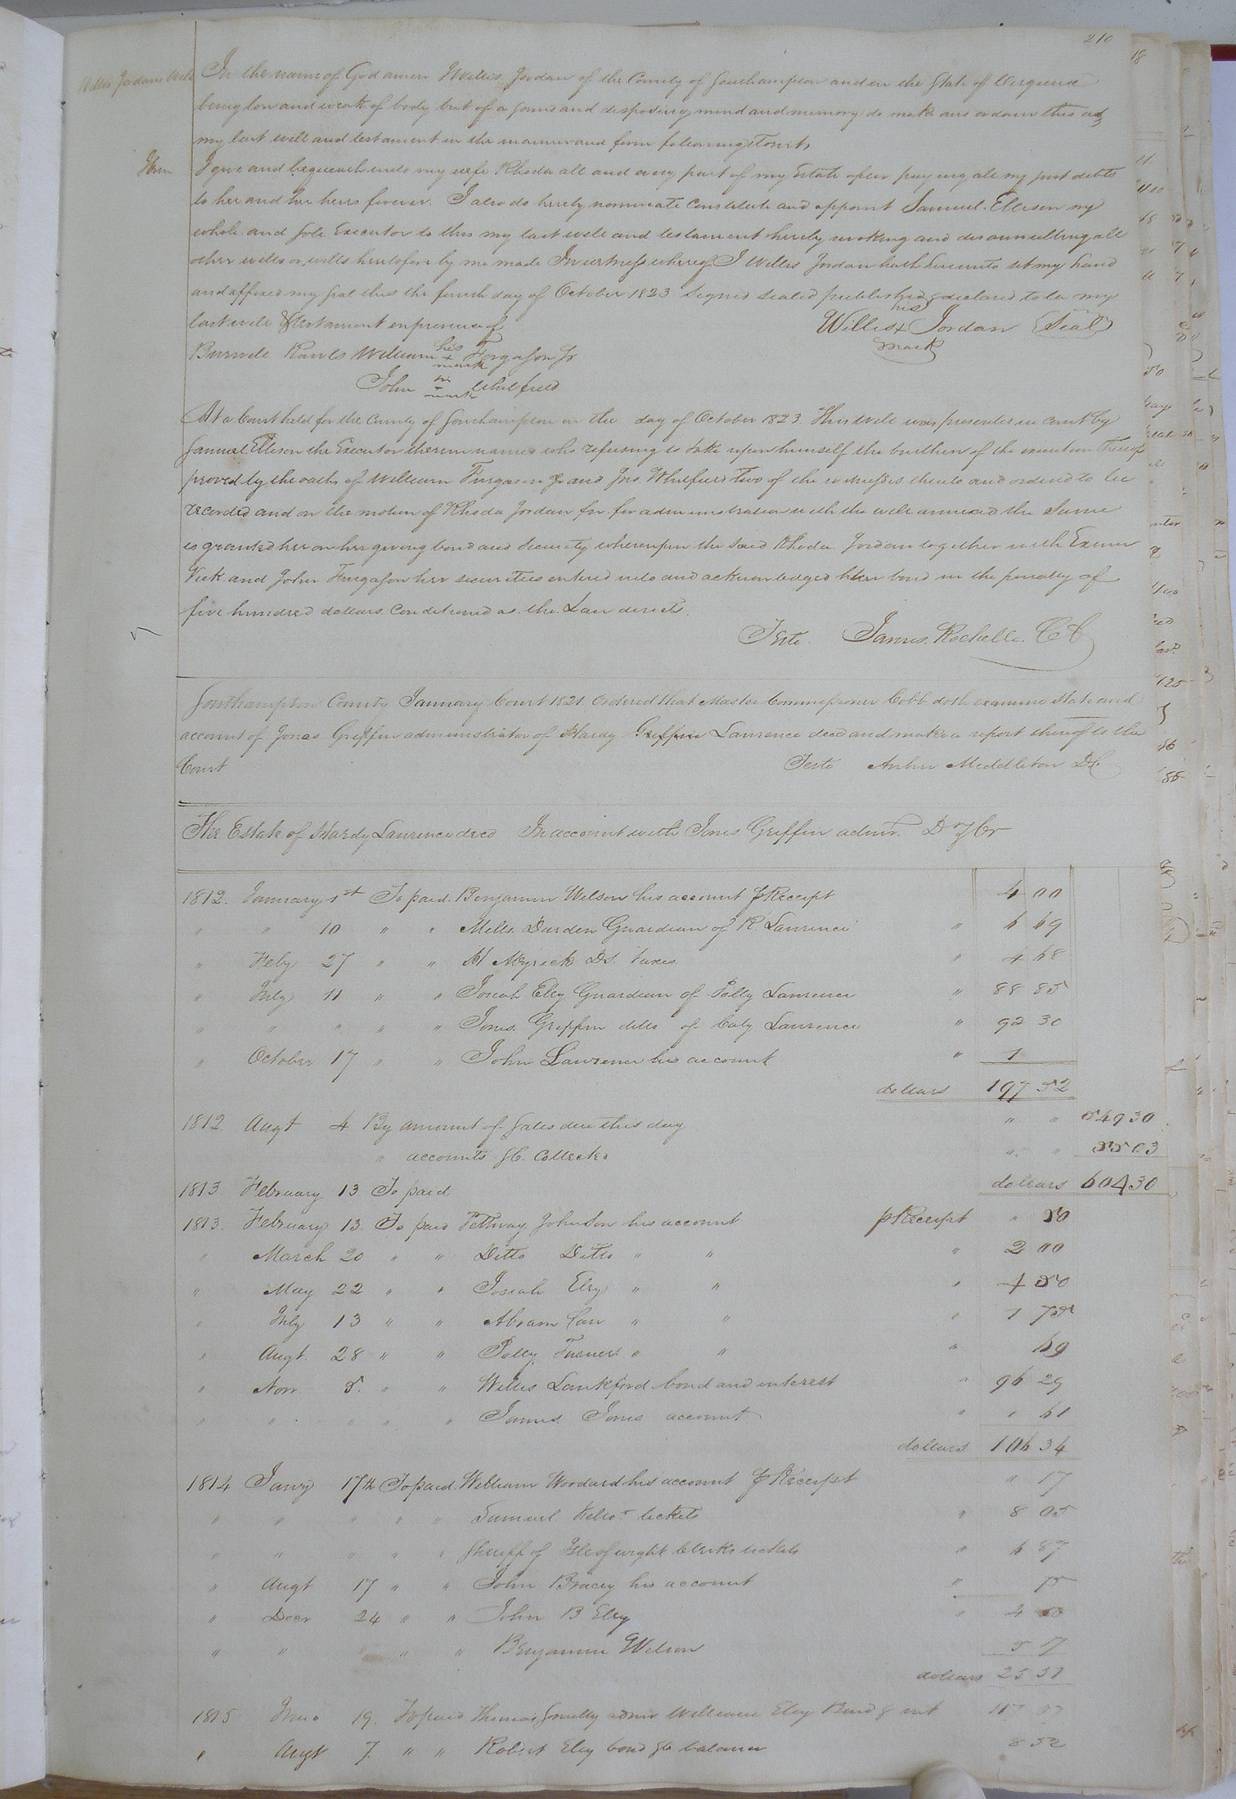 210
Willis Jordans Will In the name of God amen I Willis Jordan of the County of Southampton and in the State of Virginia
being low and weak of body but of a sound and disposing mind and memory do make and ordain this as
my last will and testament in the manner and form following Towit,
Item I give and bequeath unto my wife Rhoda all and every part of my Estate after paying all my just debts
to her and her heirs forever. I also do hereby nominate constitute and appoint Samuel Ellison my
whole and sole Executor to this my last will and testament hereby revoking and disannulling all
other wills or wills heretofore by me made In witness whereof I Willis Jordan hath hereunto set my hand
and affixed my seal this the fourth day of October 1823 signed sealed published & declared to be my
last will & testament in presence of
his
Willis + Jordan (Seal)
mark
Burwell Rawls William his + mark Fergason Jr
John his + mark Whitfield
At a Court held for the County of Southampton on the day of October 1823 This Will was presented in court by
Samuel Ellison the Executor therein named who refusing to take upon himself the burthen of the execution thereof
proved by the oaths of William Furgason Jr and Jno. Whitfield Two of the witnesses thereto and ordered to be
recorded and on the motion of Rhoda Jordan for administration with the will annexed the same
is granted her on her giving bond and security whereupon the said Rhoda Jordan together with Exum
Vick and John Furgason her securities entered into and acknowledged their bond in the penalty of
five hundred dollars Conditioned as the Law directs.
Teste James Rochelle C C
Southampton County January Court 1821 Ordered that Master Commissioner Cobb doth examine state and
account of Jonas Griffin administrator of Hardy Griffin Laurence decd and make a report thereof to the
Court Teste Arthur Middleton DC
The Estate of Hardy Laurence decd In account with Jonas Griffin admr. Dr & Cr
1812. January 1st To paid Benjamin Wilson his account p Receipt 4 00
" " 10 " " Mills Darden Guardian of R Laurence " 6 69
" Feby 27 " " M Myrick DS. Taxes " 4 68
" July 11 " " Josiah Eley Guardian of Polly Laurence " 88 85
" " " " " Jonas Griffin ditto of Caty Laurence " 92 30
" October 17 " " John Laurence his account " 1
dollars 197 52
1812 Augt 4 By amount of sales due this day " " 549 30
" accounts Collected " " 55 03
1813 February 13 To paid dollars 604 30
1813. February 13. To paid Pettway Johnson his account p Receipt " 50
" March 20 " " Ditto Ditto " " " 2 00
" May 22 " " Josiah Eley " " " 4 50
" July 13 " " Abram Carr " " " 1 75
" Augt 28 " " Polly Turner " " " 69
" Nov 5. " " Willis Lankford bond and interest " 96 29
" " " " " James Jones account " " 61
dollars 106 34
1814 Jany 17th To paid William Woodard his account p Receipt " 17
" " " " " Samuel tickets " 8 05
" " " " " Sheriff of Isle of wight Clerks tickets " 6 87
" Augt 17 " " John Bracey his account " 75
" Decr 24 " " John B Eley " 4 50
" " " " Benjamin Wilson 5 17
dollars 25 51
1815 19. To paid Thomas admr William Eley Bond & int
" Augt 7. " " Robert Eley bond balance 8 52